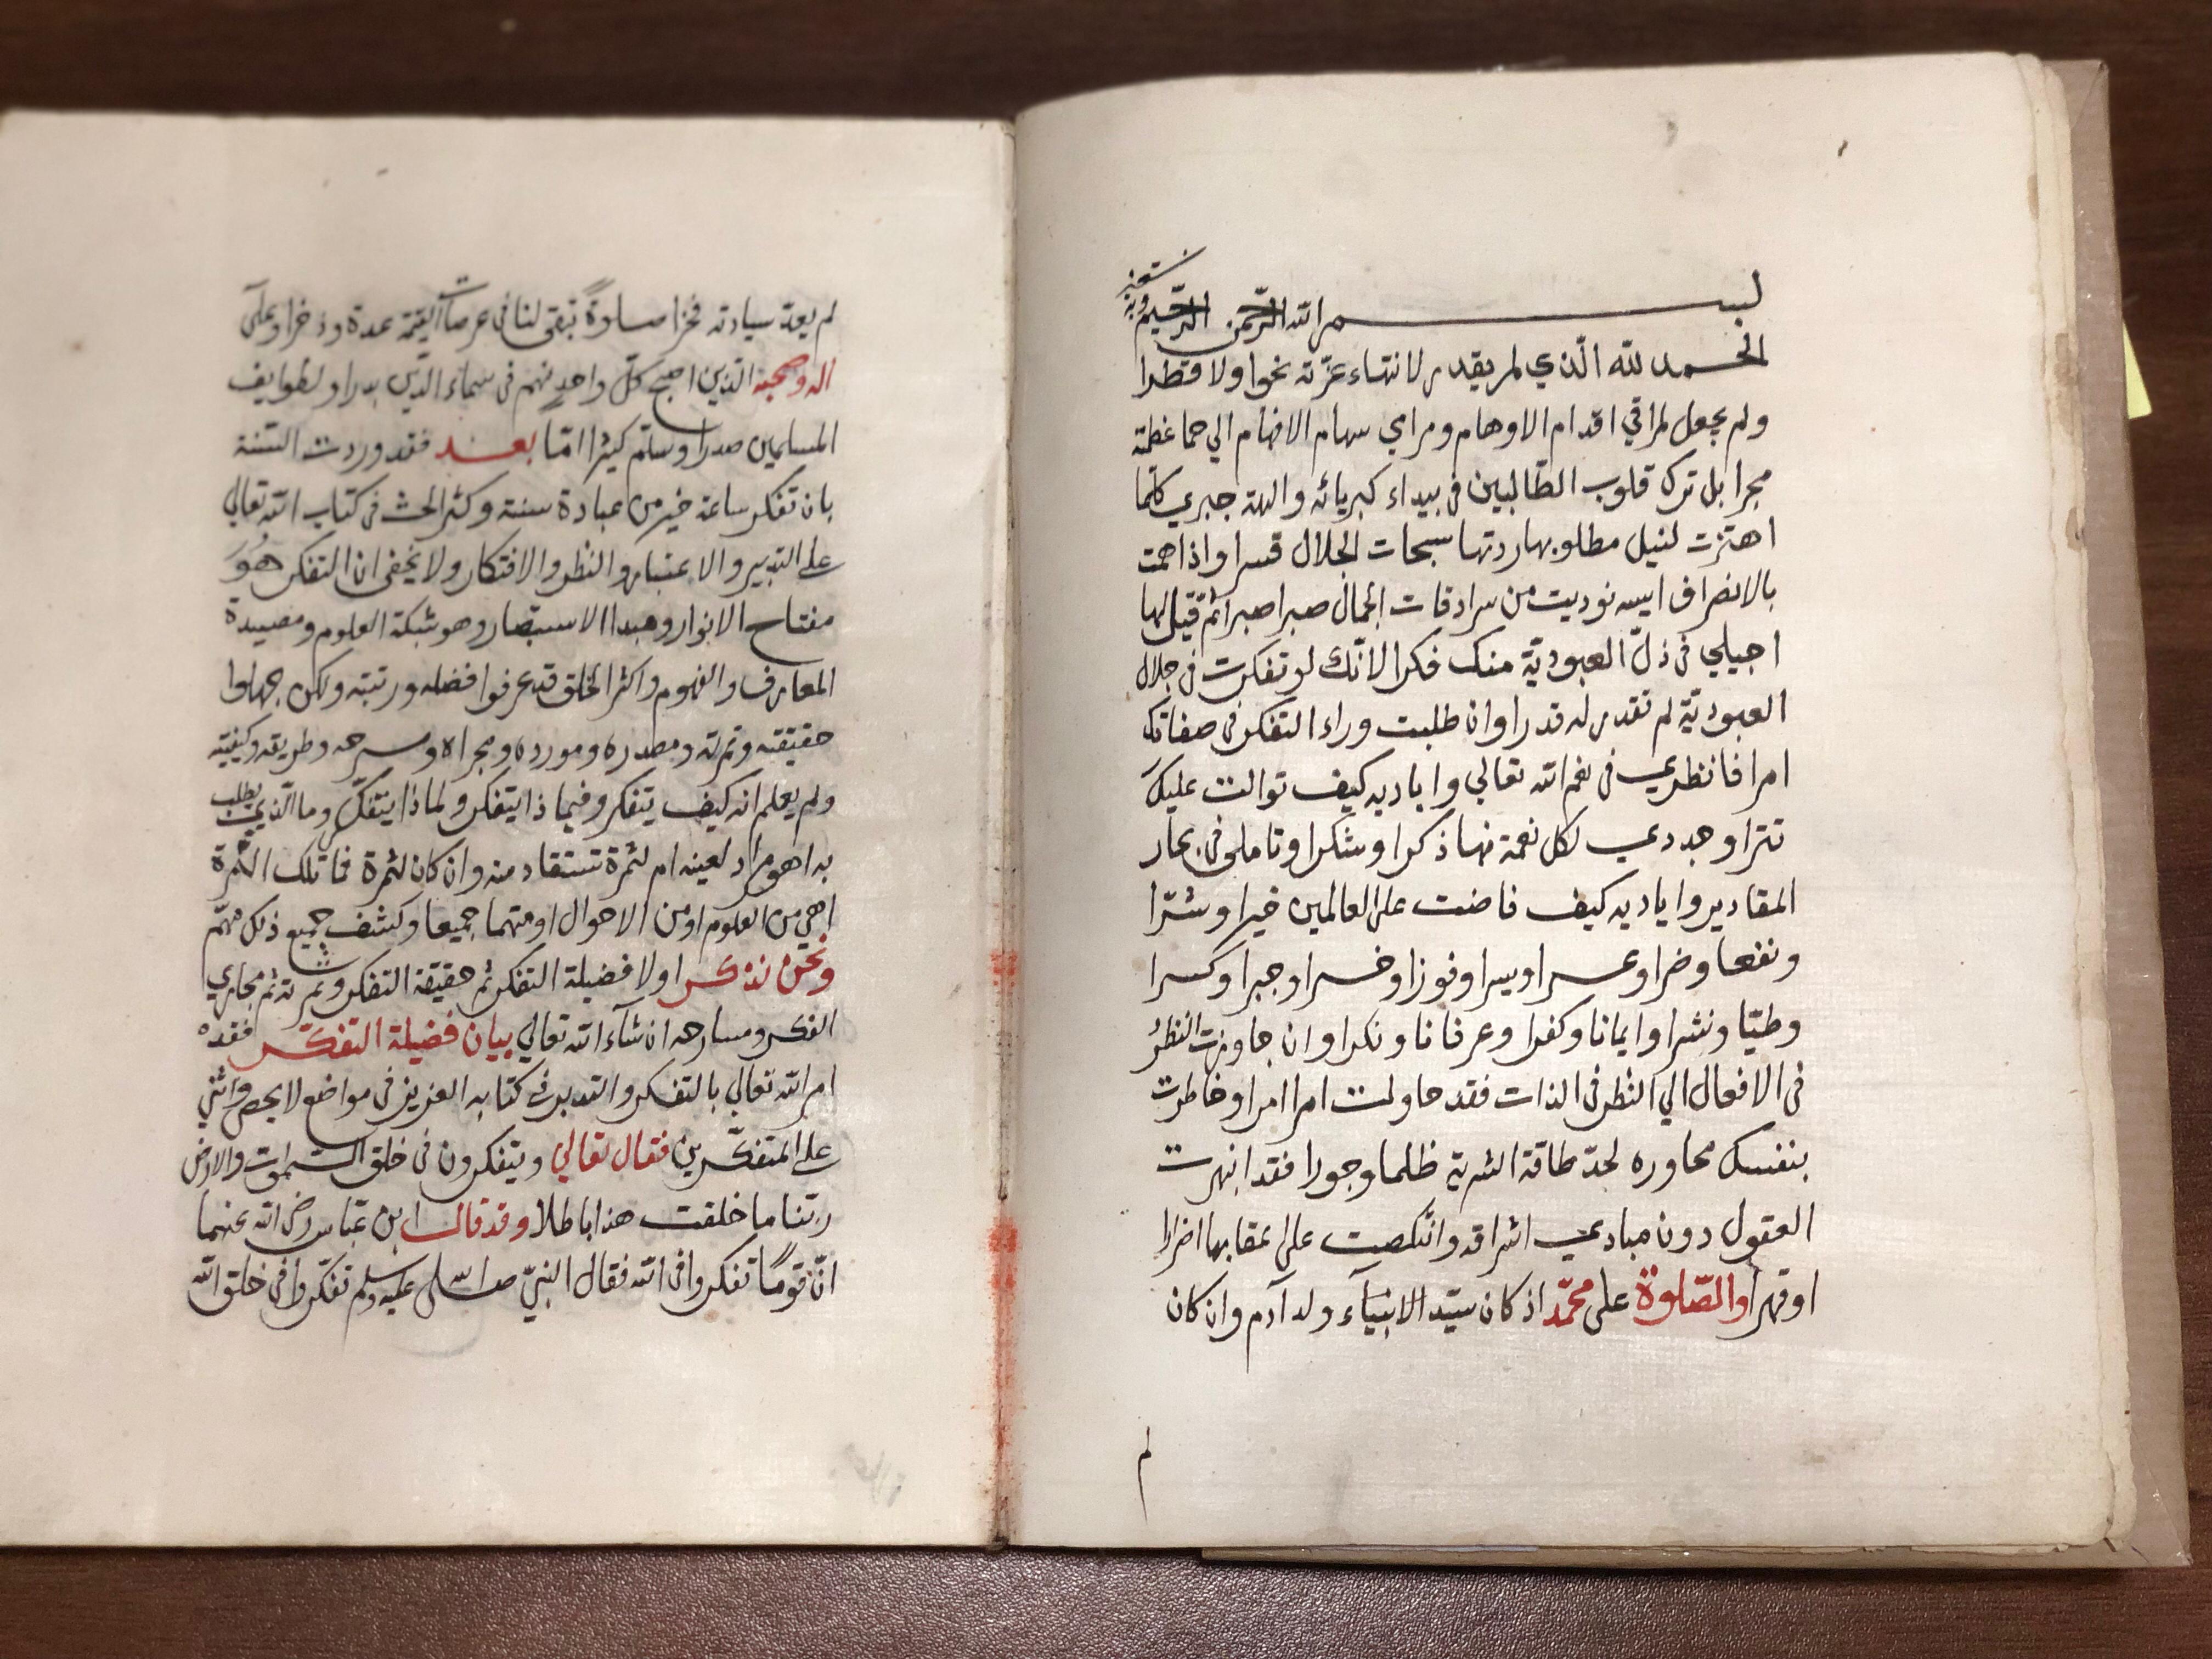 بسم الله الرحمن الرحيم وبه نستعين
الحمد لله الّذي لم يقدر لانتهاء عزّته نحوا ولا قطرا
ولم يجعل لمراقي اقدام الاوهام ومرامي سهام الافهام الي حما عظمته
مجرا بل ترك قلوب الطّالبين في بيداء كبريائه والهة حيري كلما
اهتزت لنيل مطلوبها ردتها سبحات الجلال قسرا واذا همت
بالانصراف ايسه نوديت من سرادقات الجمال صبرا صبرا ثم قيل لها
اجيلي في ذلّ العبوديّة منك فكرا لانّك لو تفكرت في جلال
العبوديّة لم تقدر له قدرا وان طلبت وراء التفكر في صفاتك
امرا فانظري في نعم الله تعالي واياديه كيف توالت عليك
تترا وجددي لكل نعمة منها ذكرا وشكرا وتاملي في بحار
المقادير واياديه كيف فاضت علي العالمين خيرا وشرّا
ونفعا وضرا وعسرا ويسرا وفوزا وخسرا وجبرا وكسرا
وطيّا ونشرا وايمانا وكفرا وعرفانا ونكرا وان جاوزت النظرُ
في الافعال الي النظر في الذات فقد حاولت امرا امرا وخاطرت
بنفسك مجاوره لحدّ طاقة البشرية ظلما وجورا فقد انبهرت
العقول دون مبادي اشراقه وانتكصت علي اعقابها اضرارا
او قهرا والصّلوة على محمّد اذ كان سيّد الانبيآء ولد آدم وان كان
لم
لم يعدّ سيادته فخرا صلوةً تبقي لنا في عرصات القيمة عدة وذخرا وعلي
اله وصحبه الذين اصبح كلّ واحدٍ منهم في سماء الدّين بدرا ولطوايف
المسلمين صدرا وسلّم كثيرا امّا بعد فقد وردت السّنة
بان تفكر ساعة خير من عبادة سنة وكثر الحث في كتاب الله تعالي
علي التدبير والاعتبار والنظر والافتكار ولا يخفي ان التفكر هُوَ
مفتاح الانوار ومبدا الاستبصار وهو شبكة العلوم ومصيدة
المعارف والفهوم واكثر الخلق قد عرفوا فضله ورتبته ولكن جهلوا
حقيقته وثمرته ومصدره ومورده ومجراه ومسرحه وطريقه وكيفيته
ولم يعلم انه كيف يتفكر وفيما ذا يتفكر ولماذا يتفكّر وما الّذي يطلب
به اهو مراد لعينه ام لثمرة تستفاد منه وان كان لثمرة فما تلك الثمرة
اهي من العلوم او من الاحوال او منهما جميعا وكشف جميع ذلك مهمّ
ونحن نذكر اولا فضيلة التفكر ثم حقيقة التفكر وثمرته ثم مجاري
الفكر ومسارحه ان شآء الله تعالي بيان فضيلة التفكّر فقد
امر الله تعالي بالتفكر والتدبر في كتابه العزيز في مواضع لا يحصي واثني
علي المتفكّرين فقال تعالي ويتفكرون في خلق السّموات والارض
ربّنا ما خلقت هذا باطلا وقد قال ابن عبّاس رضي الله عنهما
انّ قومًا تفكروا في الله فقال النبيّ صلي الله عليه وسلم تفكّروا في خلق الله